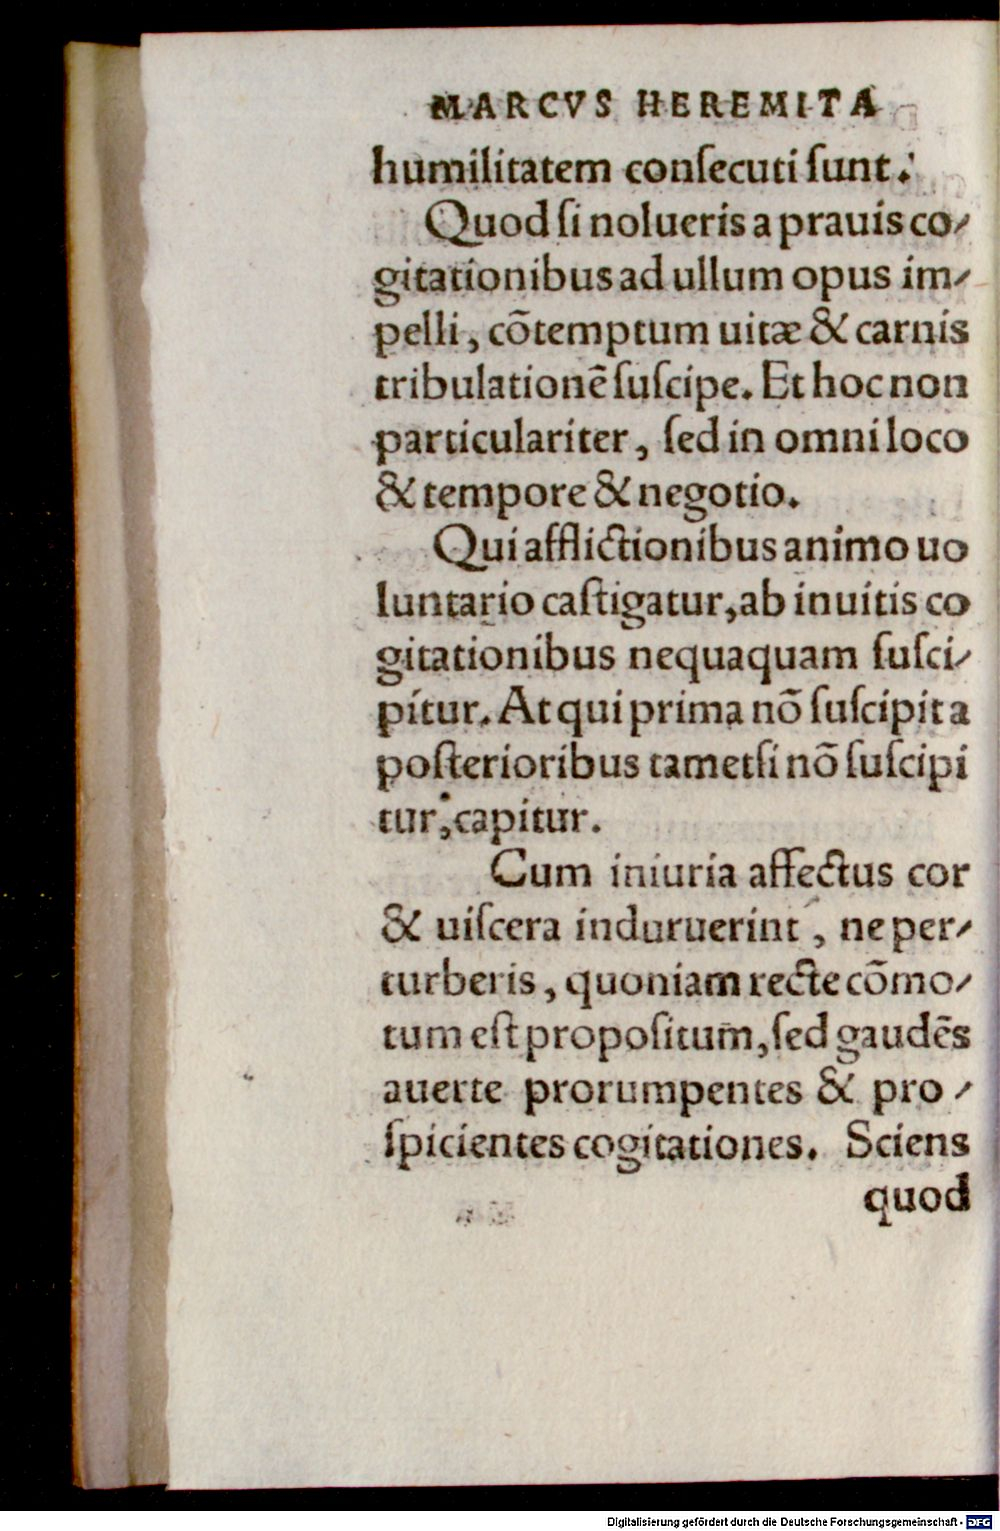 MARCVS HEREMITA
humilitatem conſecuti ſunt.
Quod ſi nolueris a prauis co⸗
gitationibus ad ullum opus im⸗
pelli, cōtemptum uitæ & carnis
tribulationē ſuſcipe. Et hoc non
particulariter, ſed in omni loco
& tempore & negotio.
Qui afflictionibus animo uo
luntario caſtigatur, ab inuitis co
gitationibus nequaquam ſuſci⸗
pitur. At qui prima nō ſuſcipit a
poſterioribus tametſi nō ſuſcipi
tur, capitur.
Cum iniuria affectus cor
& uiſcera induruerint, ne per⸗
turberis, quoniam recte cōmo⸗
tum eſt propoſitum, ſed gaudēs
auerte prorumpentes & pro⸗
ſpicientes cogitationes. Sciens
quod
Digitalisierung gefördert durch die Deutsche Forschungsgemeinschaft - DFG